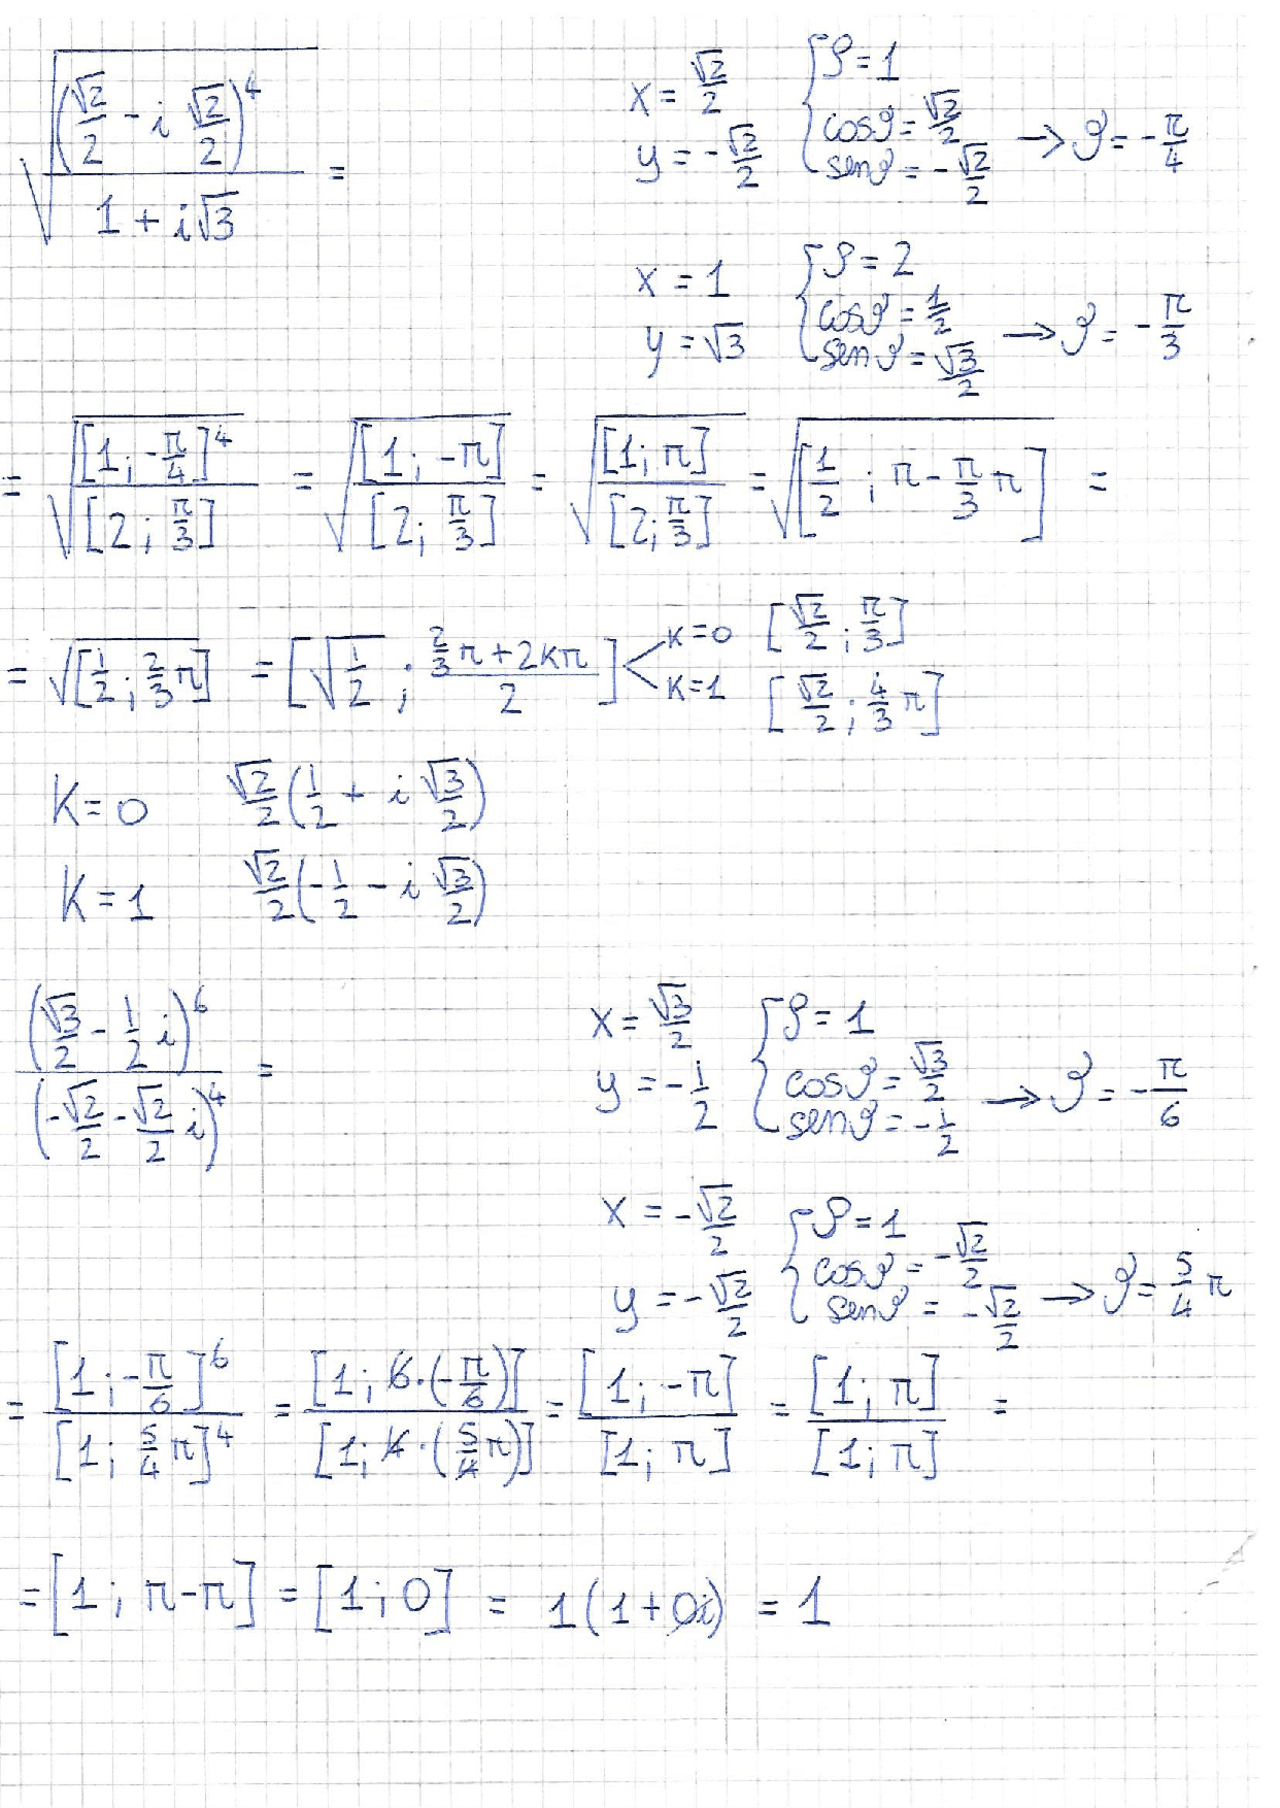 √(((√2/2 - i √2/2)^4)/(1 + i√3)) =
x = √2/2
y = -√2/2
{ρ = 1
cosϑ = √2/2
senϑ = -√2/2 → ϑ = -π/4
x = 1
y = √3
{ρ = 2
cosϑ = 1/2
senϑ = √3/2 → ϑ = -π/3
= √([1; -π/4]^4/[2; π/3]) = √([1; -π]/[2; π/3]) = √([1; π]/[2; π/3]) = √[1/2; π - π/3 π] =
= √[1/2; 2/3 π] = [√1/2; (2/3 π + 2kπ)/2] < k=0 [√2/2; π/3]
k=1 [√2/2; 4/3 π]
K = 0 √2/2 (1/2 + i √3/2)
K = 1 √2/2 (-1/2 - i √3/2)
(√3/2 - 1/2 i)^6/(-√2/2 - √2/2 i)^4 =
x = √3/2
y = -1/2
{ρ = 1
cosϑ = √3/2
senϑ = -1/2 → ϑ = -π/6
x = -√2/2
y = -√2/2
{ρ = 1
cosϑ = -√2/2
senϑ = -√2/2 → ϑ = 5/4 π
= [1; -π/6]^6/[1; 5/4 π]^4 = [1; 6·(-π/6)]/[1; 4·(5/4 π)] = [1; -π]/[1; π] = [1; π]/[1; π] =
= [1; π-π] = [1; 0] = 1(1+0i) = 1